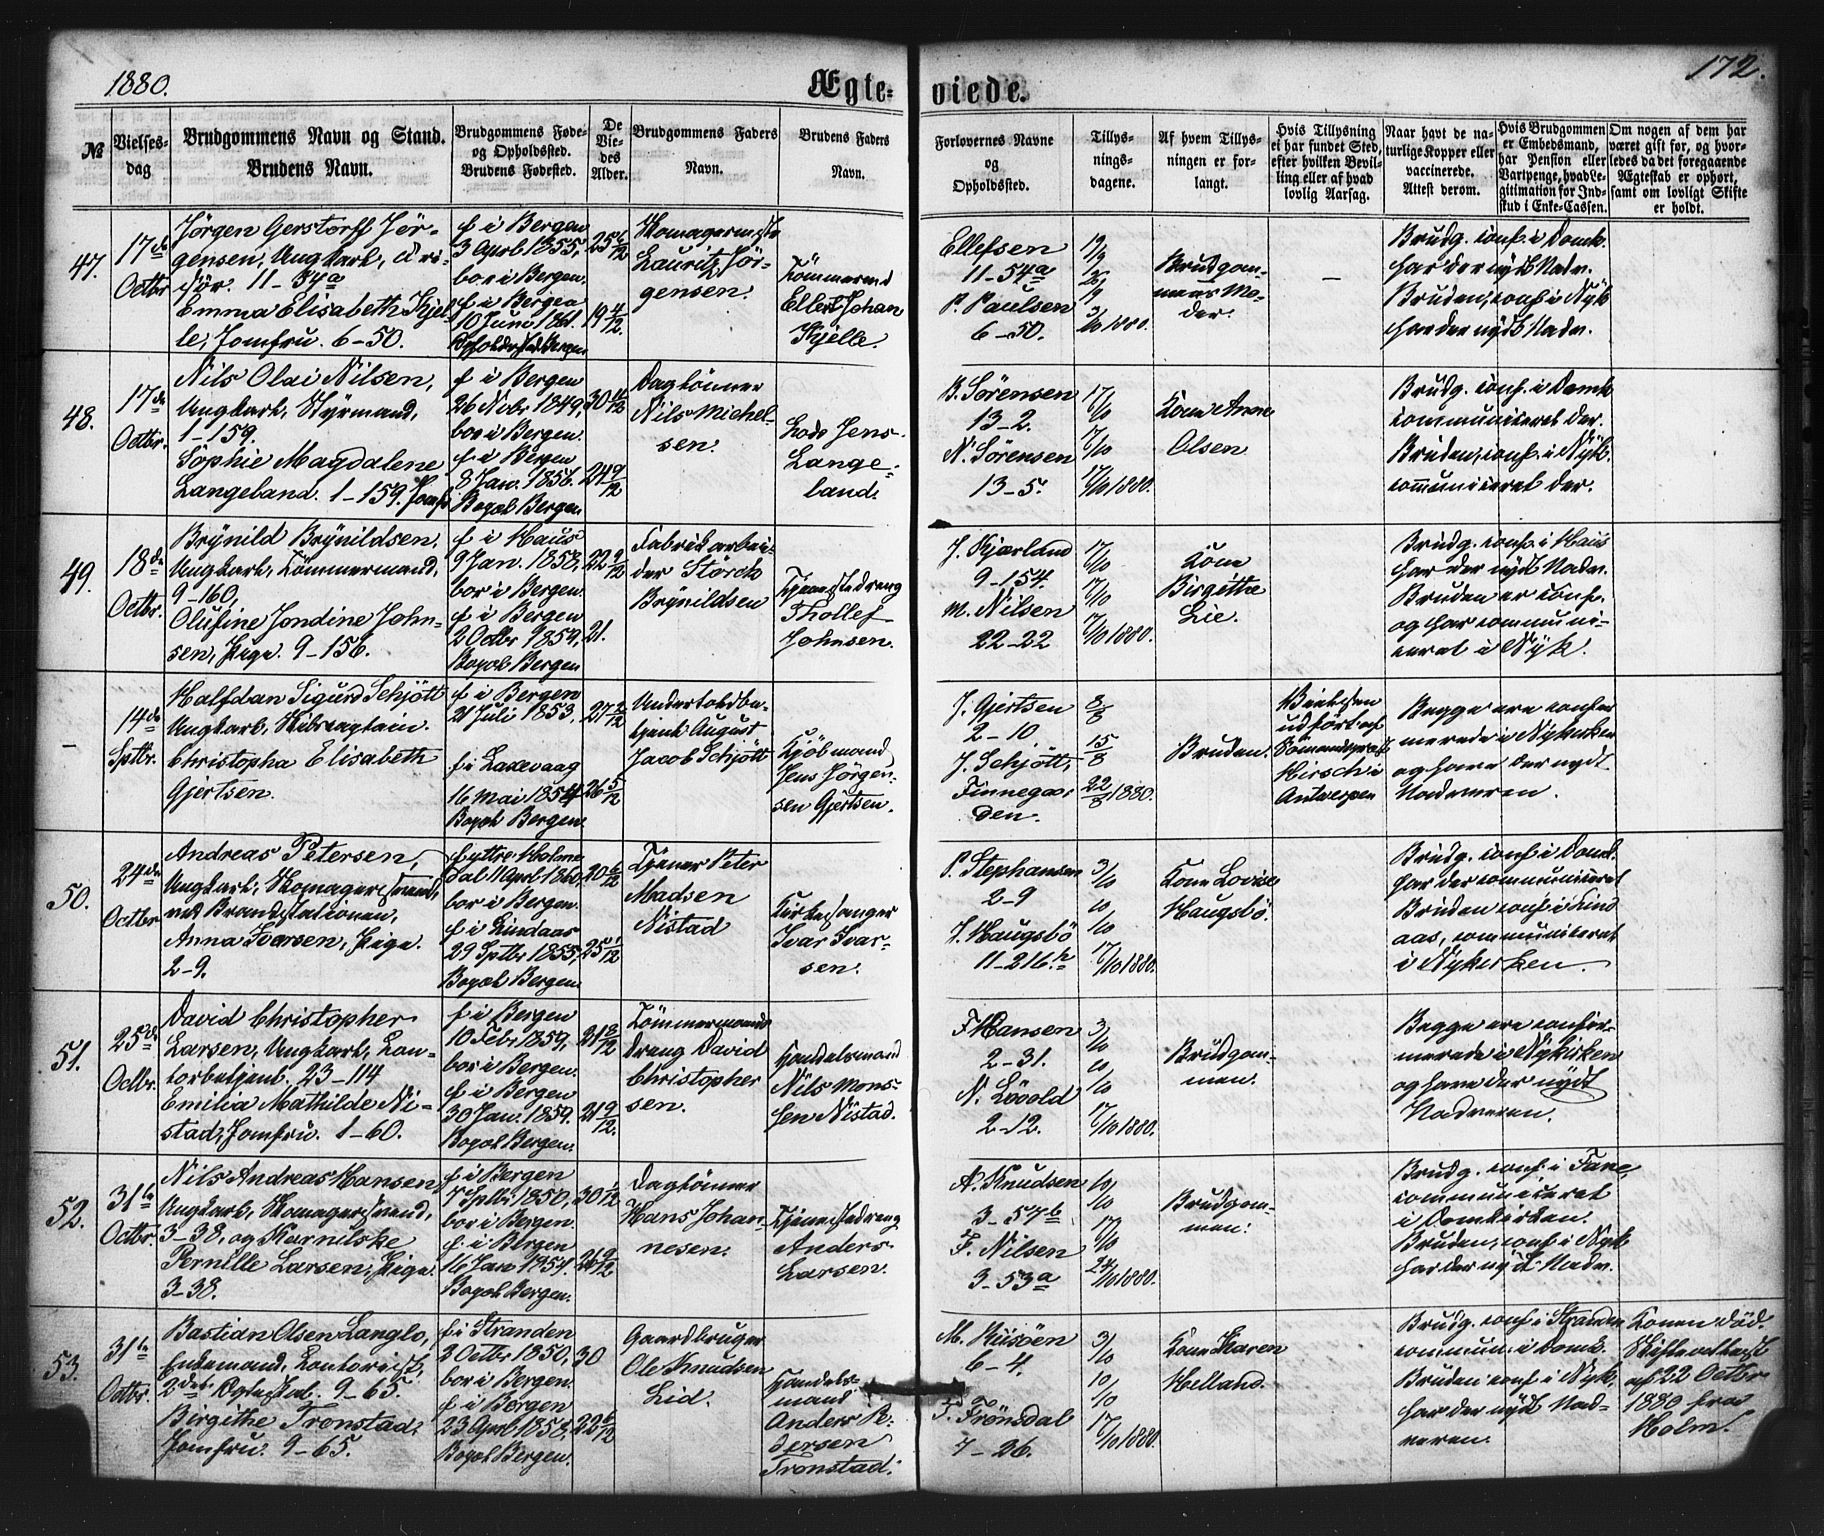 1880.
Ægte-
viede.
172.
№
Vielses-
dag
Brudgommens Navn og Stand.
Brudens Navn.
Brudgommens Føde-
og Opholdssted.
Brudens Fødested.
De
Vie-
des
Alder.
Brudgommens Faders
Navn.
Brudens Faders
Navn.
Forlovernes Navne
og
Opholdssted.
Tillys-
nings-
dagene.
Af hvem Tillys-
ningen er for-
langt.
Hvis Tillysning
ei har fundet Sted,
efter hvilken Bevil-
ling eller af hvad
lovlig Aarsag.
Naar havt de na-
turlige Kopper eller
vaccinerede.
Attest derom.
Hvis Brudgommen
er Embedsmand,
har Pension eller
Vartpenge, hvad Le-
gitimation for Ind-
skud i Enke-Cassen.
Om nogen af dem har
været gift før, og hvor-
ledes da det foregaaende
Ægteskab er ophørt,
samt om lovligt Skifte
er holdt.
47.
17de
Octbr
Jørgen Gerstorff Jør-
gensen, Ungkarl,
11-54a
Emma Elisabeth Kjel-
le, Jomfru. 6-50.
f i Bergen
3 April 1855,
bor i Bergen.
f i Bergen
10 Juni 1861.
Bergen
25 6/12
19 4/12.
Lauritz Jør-
gensen.
Tømmermd
Ellert Johan
Kjelle.
Ellefsen
11-54a
P. Paulsen
6-50.
19/9
26/9
3/10 1880.
Brudgom-
mens Mo-
der.
—
Brudg. conf. i Domk.
har der nydt Nadv.
Bruden, conf. i Nyk
har der nydt Nadv.
48.
17de
Octbr.
Nils Olai Nilsen,
Ungkarl, Styrmand,
1-159.
Sophie Magdalene
Langeland. 1-159. Jomfr
f i Bergen
26 Novbr 1849,
bor i Bergen.
f i Bergen
8 Jan. 1856.
Bopæl Bergen
30 11/12
24 9/12
Dagtønner
Nils Michel-
sen.
Lods Jens
Lange-
land.
B. Sørensen
13-2.
N. Sørensen
13-5.
17/10
17/10
17/10 1880.
Kone Anne
Olsen
Brudg. conf. i Domk
communiceret der.
Bruden, conf. i Nyk.
communiceret der.
49.
18de
Octbr.
Brynild Brynildsen,
Ungkarl, Tømmermand,
9-160,
Olufine Jondine John-
sen, Pige. 9-156.
f i Haus
9 Jan. 1858,
bor i Bergen.
f i Bergen
2 Octbr 1859,
Bopæl Bergen
22 9/12
21.
Fabrikarbei-
der Störck
Brynildsen
Tjenestedreng
Thollef
Johnsen.
J. Kjærland
9-154.
M. Nilsen
22-22
17/10
17/10
17/10 1880.
Kone
Birgithe
Lie.
Brudg. conf. i Haus
har der nydt Nadv.
Bruden er conf.
og har communi-
ceret i Nyk.
–
14de
Sptbr.
Halfdan Sigurd Schjøtt
Ungkarl, Skibscaptain.
Christopha Elisabeth
Gjertsen.
f i Bergen
21 Juli 1853.
f i Laxevaag
16 Mai 1854
Bopæl Bergen.
27 2/12
26 5/12
Undertoldbe-
tjent August
Jacob Schjøtt
Kjøbmand
Jens Jørgen-
sen Gjertsen.
J. Gjertsen
2-10
J. Schjøtt,
Finnegaar-
den.
8/8
15/8
22/8 1880.
Bruden.
Vielsen
udført af
Sømandspræst
Hirsch i
Antwerpen
Begge ere confir
merede i Nykirken
og have der nydt
Nadveren.
50.
24de
Octbr
Andreas Petersen,
Ungkarl, Skomagersvend,
ved Brandstationen,
Anna Ivarsen, Pige.
2-9.
f yttre Holme
dal 11 April 1860,
bor i Bergen.
f i Lindaas
29 Sptbr 1855,
Bopæl Bergen.
20 6/12
25 1/12
Tjener Peter
Madsen
Nistad
Kirkesanger
Ivar Ivar-
sen.
P. Stephansen
2-9
J. Haugsbø
11-216.h
3/10
10/10
17/10 1880.
Kone Lovise
Haugsbø.
Brudg. conf. i Domk.
har der communiceret
Bruden conf. i Lind
aas, communiceret
i Nykirken.
51.
25de
Octbr.
David Christopher
Larsen, Ungkarl, Con-
torbetjent. 23-114
Emilia Mathilde Ni-
stad, Jomfru. 1-60.
f i Bergen
10 Febr 1859,
bor i Bergen.
f i Bergen
30 Jan. 1859.
Bopæl Bergen.
21 8/12
21 9/12.
Tømmermands
dreng David
Christopher
sen.
Handelsmand
Nils Mons-
sen Nistad.
F Hansen
2-31.
N. Løvold
2-12.
3/10
10/10
17/10 1880.
Brudgom-
men.
Begge ere confir-
merede i Nykirken
og have der nydt
Nadveren.
52.
31te
Octbr.
Nils Andreas Hansen
Ungkarl, Skomagersvend,
3-38, og Karnilske
Pernille Larsen, Pige.
3-38.
f i Bergen
7 Sptbr 1850,
bor i Bergen.
f. i Bergen
16 Jan 1854.
Bopæl Bergen.
30 1/12
26 9/12
Dagtønner
Hans Johan-
nesen.
Tjenestedreng
Anders
Larsen.
A. Knudsen
3-57b
F. Nilsen
3-53a
10/10
17/10
24/10 1880.
Brudgom-
men.
Brudg. conf. i Fane,
communiceret
i Domkirken.
Bruden, conf. i Nyk
har der nydt Nadv.
53.
31te
Octbr.
Bastian Olsen Langlo,
Enkemand, Contorist,
2det Ægteskab. 9-65.
Birgithe Tronstad,
Jomfru. 9-65.
f i Stranden
2 Octbr 1850,
bor i Bergen.
f i Bergen
23 April 1858,
Bopæl Bergen.
30
22 6/12
Gaardbruger
Ole Knudsen
Lid.
Handels-
mand
Anders P-
dersen
Tronstad.
M. Riisøen
6-4.
T. Trønsdal
7-26.
3/10
10/10
17/10 1880.
Kone Karen
Helland.
Brudg. conf. i Stranden
commun. i Domk.
Bruden conf. i Nyk,
har der nydt Nad-
veren.
Konen død.
Skifteattest
af 22 Octbr
1880 fra
Holm.